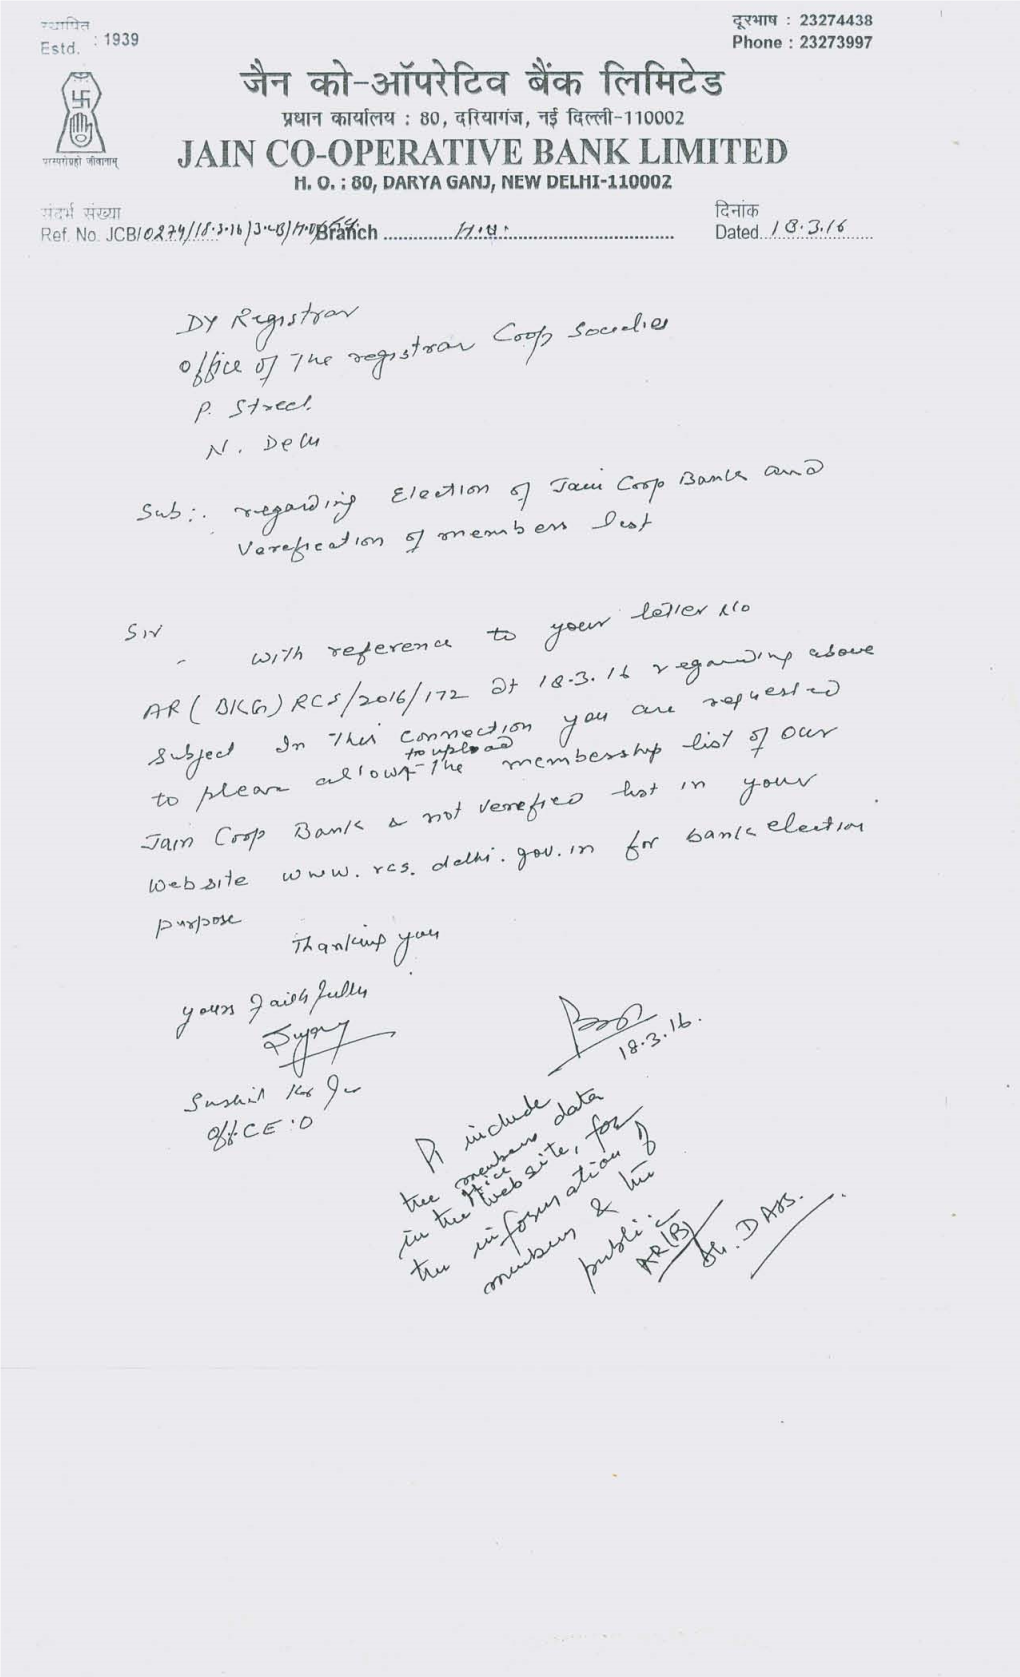 स्थापित
Estd. : 1939
दूरभाष : 23274438
Phone : 23273997
जैन को-ऑपरेटिव बैंक लिमिटेड
प्रधान कार्यालय : 80, दरियागंज, नई दिल्ली-110002
परस्परोपग्रहो जीवानाम्
JAIN CO-OPERATIVE BANK LIMITED
H. O. : 80, DARYA GANJ, NEW DELHI-110002
संदर्भ संख्या
दिनांक
Ref. No. JCB/0274/18.3.16 Branch H.O. Dated 18.3.16
DY Registrar
Office of The registrar Coop Societies
P. Street
N. Delhi
Sub:. regarding Election of Jain Coop Bank and
Verefication of members list
Sir
With reference to your letter No
AR (BKG) RCS/2016/172 dt 18.3.16 regarding above
subject In This connection you are requested
to please allow to upload The membership list of our
Jain Coop Bank & not verefied list in your
website www.rcs.delhi.gov.in for bank election
purpose
Thanking you
yours Faithfully
Sushil Kr
Off. C E.O
18.3.16.
Pl include
the members data
in the office website, for
the information of
members & the
public
AR(B)